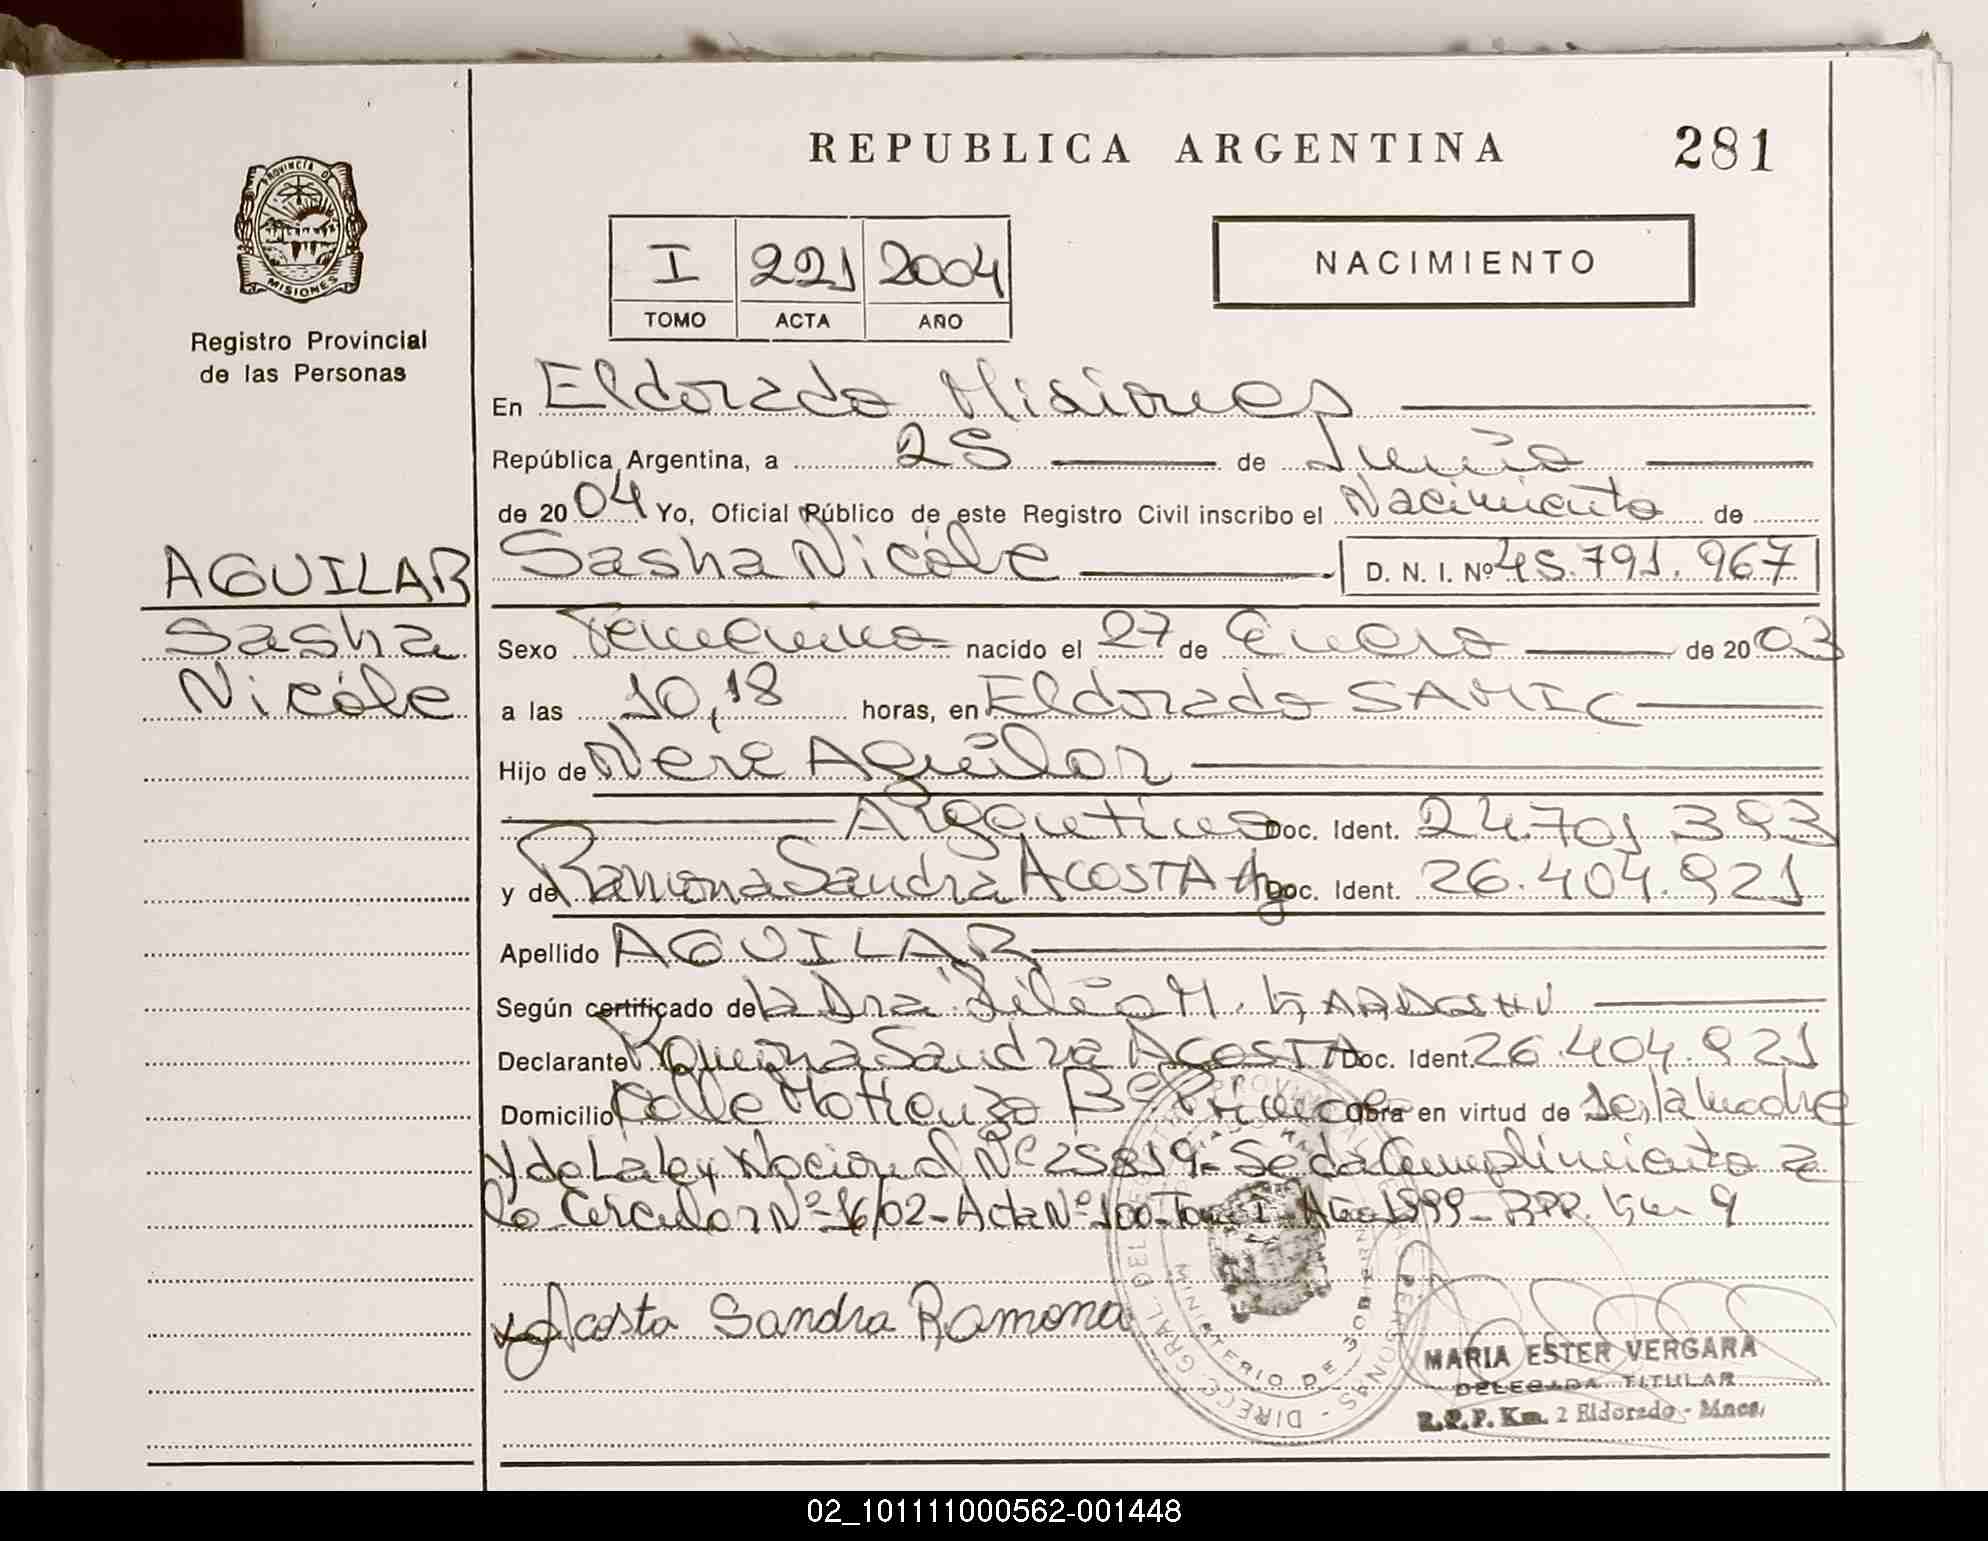 REPUBLICA ARGENTINA
281
PROVINCIA DE
MISIONES
Registro Provincial
de las Personas
I 221 2004
TOMO ACTA AÑO
NACIMIENTO
En Eldorado Misiones
República Argentina, a 25 de Junio
de 2004 Yo, Oficial Público de este Registro Civil inscribo el Nacimiento de
AGUILAR
Sasha
Nicóle
Sasha Nicóle D. N. I. Nº 45.791.967
Sexo Femenino nacido el 27 de Enero de 2003
a las 10,18 horas, en Eldorado SAMIC
Hijo de Neri Aguilar
Argentino Doc. Ident. 24.701.393
y de Ramona Sandra ACOSTA Arg Doc. Ident. 26.404.921
Apellido AGUILAR
Según certificado de la Dra M.
Declarante Ramona Sandra ACOSTA Doc. Ident. 26.404.921
Domicilio Calle Bº Obra en virtud de ser la madre
y de La Ley Nacional Nº 25819- Se da Cumplimiento a
la Circular Nº 16/02- Acta Nº 100- Tomo I- Año 1999- RPP. Km 9
Acosta Sandra Ramona
MARIA ESTER VERGARA
DELEGADA TITULAR
R.P.P. Km. 2 Eldorado - Mnes.
02_101111000562-001448